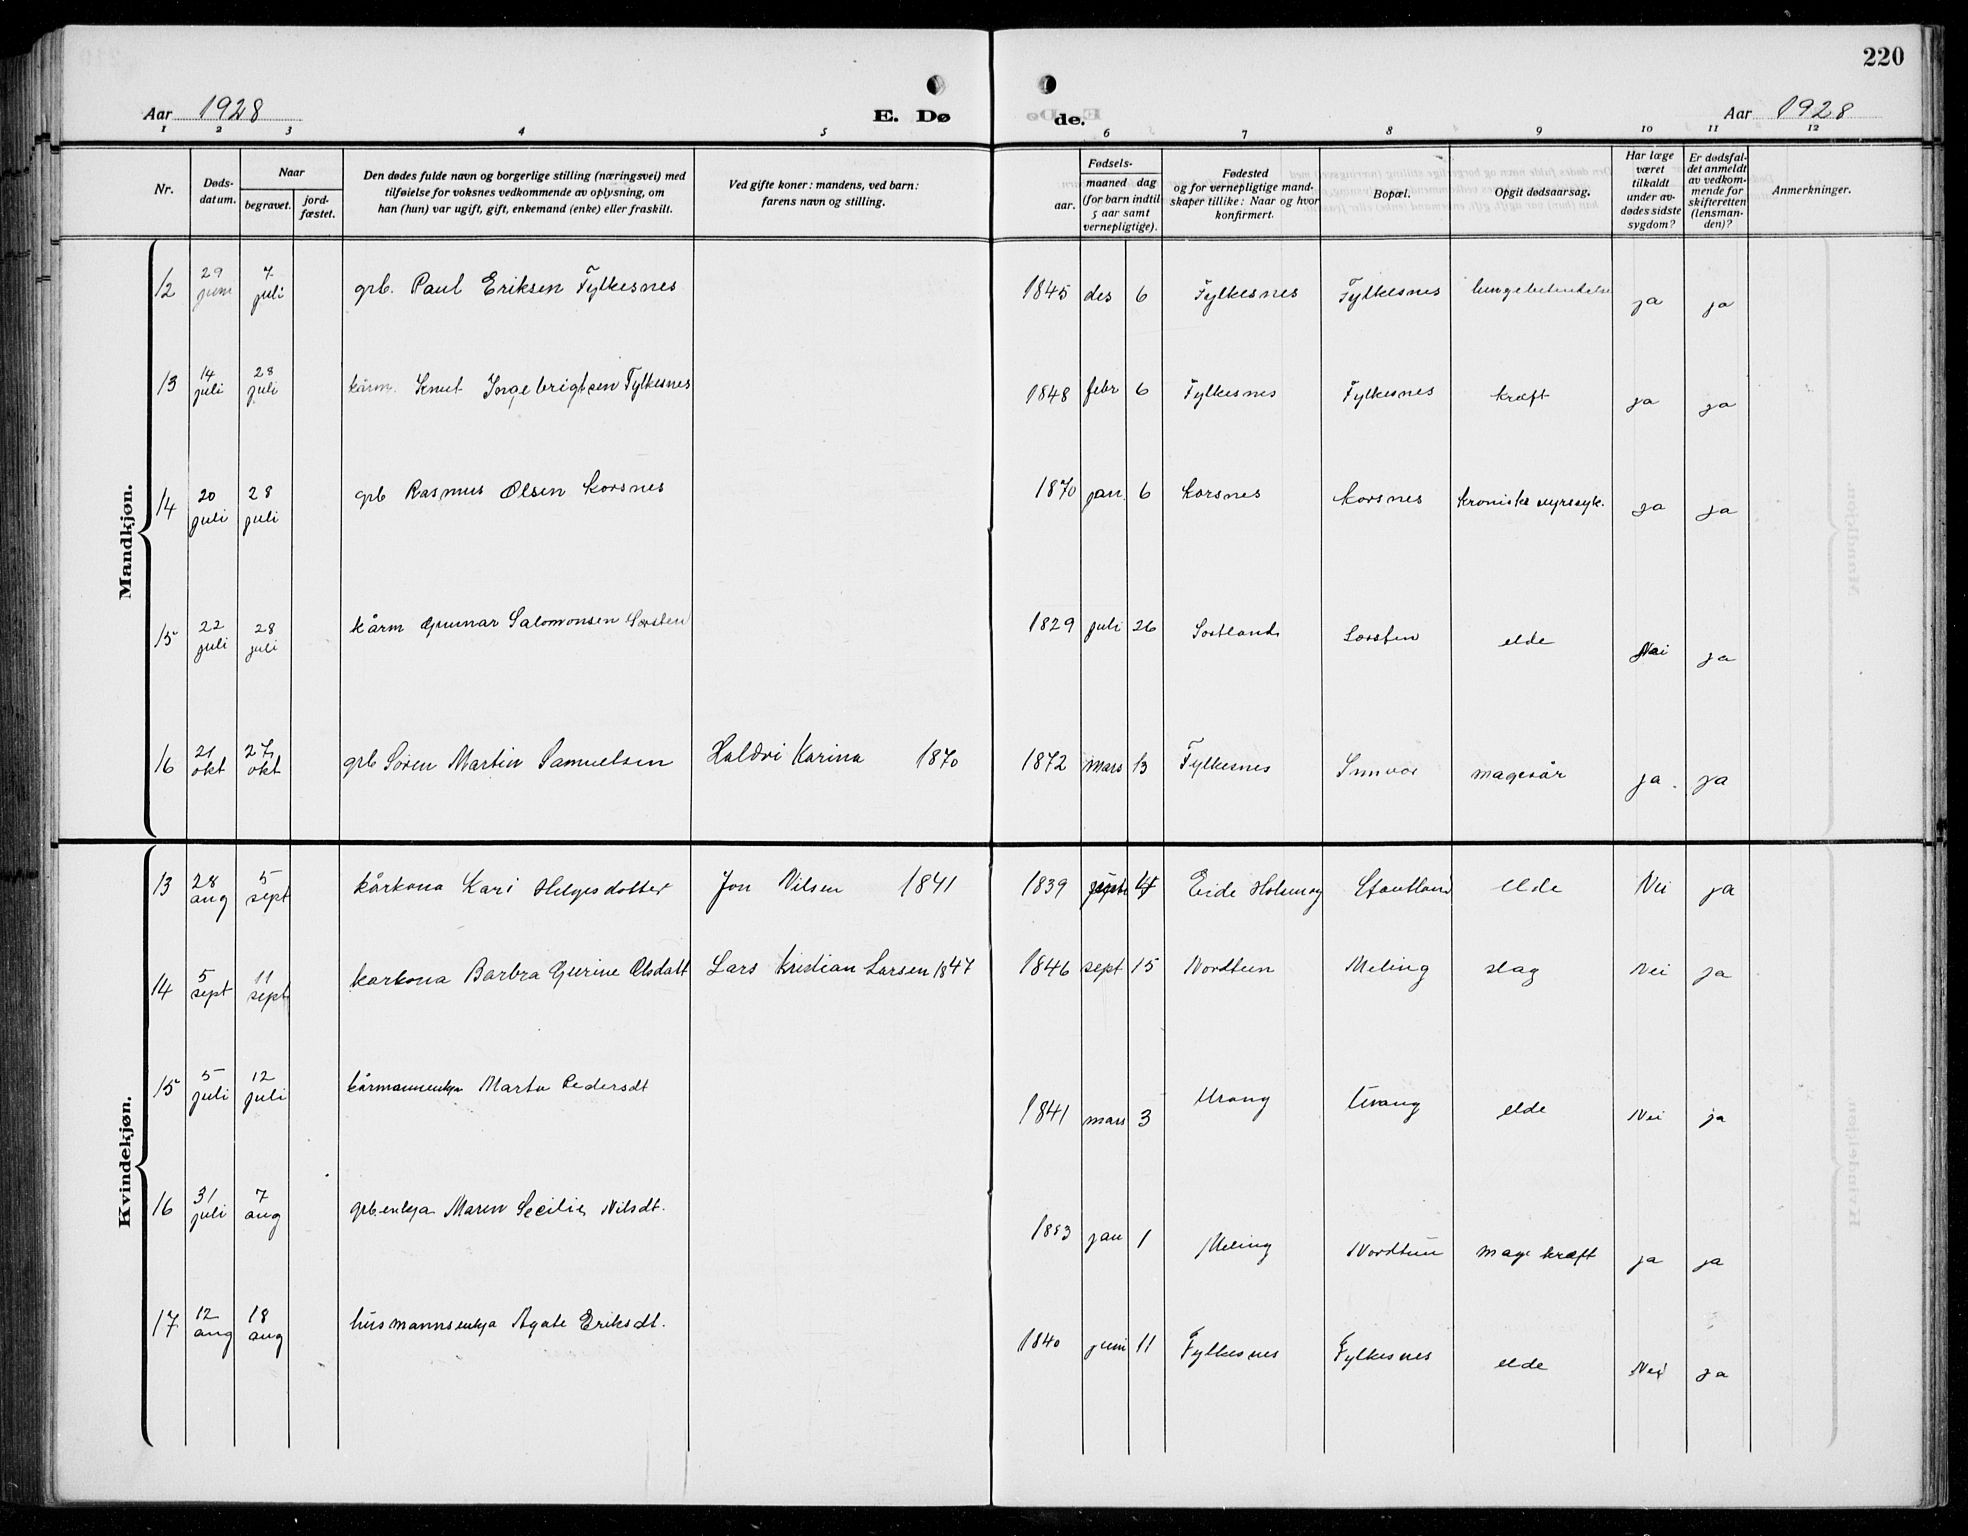 220
Aar 1928
E. Dø
de.
Aar 1928
1 2 3 4 5 6 7 8 9 10 11 12
Nr.
Døds-
datum.
Naar
begravet.
jord-
fæstet.
Den dødes fulde navn og borgerlige stilling (næringsvei) med
tilføielse for voksnes vedkommende av oplysning, om
han (hun) var ugift, gift, enkemand (enke) eller fraskilt.
Ved gifte koner: mandens, ved barn:
farens navn og stilling.
Fødsels-
aar.
maaned dag
(for barn indtil
5 aar samt
vernepligtige).
Fødested
og for vernepligtige mand-
skaper tillike: Naar og hvor
konfirmert.
Bopæl.
Opgit dødsaarsag.
Har læge
været
tilkaldt
under av-
dødes sidste
sygdom?
Er dødsfal-
det anmeldt
av vedkom-
mende for
skifteretten
(lensman-
den)?
Anmerkninger.
Mandkjøn.
12 29 juni 7 juli grb. Paul Eriksen Fylkesnes 1845 des 6 Fylkesnes Fylkesnes lungebetendelse ja ja
13 14 juli 28 juli kårm. Knut Ingebrigtsen Fylkesnes 1848 febr 6 Fylkesnes Fylkesnes kræft ja ja
14 20 juli 28 juli grb Rasmus Olsen Korsnes 1870 jan. 6 Korsnes Korsnes kroniske nyresyk. ja ja
15 22 juli 28 juli kårm Gunnar Salomonsen 1829 juli 26 elde Nei ja
16 21 okt 27 okt grb Sören Martin Samuelsen Haldri Karina 1870 1872 mars 13 Fylkesnes magesår ja. ja
Kvindekjøn.
13 28 aug 5 sept kårkona Kari Helgesdotter Jon Nilsen 1841 1839 Eide Stautland elde Nei ja
14 5 sept 11 sept karkona Barbra Gurine Olsdatt Lars Kristian Larsen 1847 1846 sept 15 Nordtun Meling slag Nei ja
15 5 juli 12 juli kårmannenkja Marta Pedersdt 1841 mars 3 Urang Urang elde Nei ja
16 31 juli 7 aug grb.enkja Maren Secilie Nilsdt. 1853 jan 1 Meling Nordtun mage kræft ja ja
17 12 aug 18 aug husmannsenkja Agate Eriksdt. 1840 juni 11 Fylkesnes Fylkesnes elde Nei ja